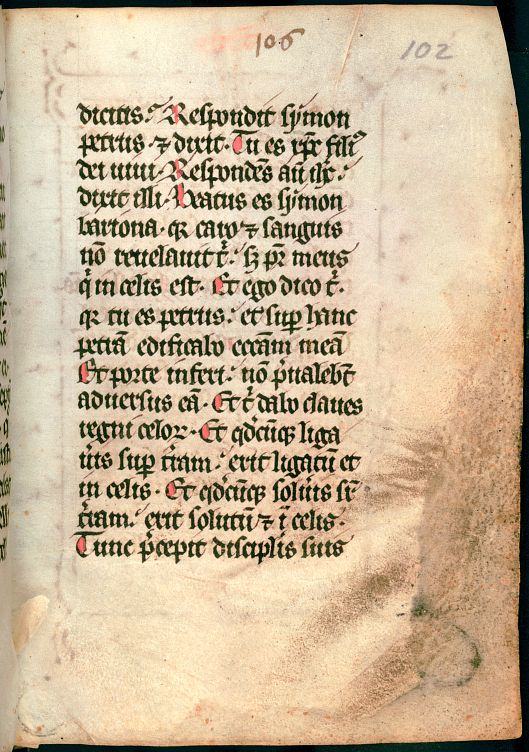 106
102
dicitis. Respondit symon
petrus ⁊ dixit. Tu es xp̄c fili᷒
dei uiui. Respondēs aū ih̄c.
dixit illi. Beatus es symon
bariona. qꝛ caro ⁊ sanguis
nō reuelauit t̄. sꝫ pr̄ meus
q̄ in celis est. Et ego dico t̄.
qꝛ tu es petrus. et suꝑ hanc
petrā edificabo eccām meā
Et porte inferi. nō p̄ualebūt
aduersus eā. Et t̄ dabo claues
regni celoꝝ. Et qdcūqꝫ liga
u̾is suꝑ t̄ram. erit ligatū et
in celis. Et qdcūqꝫ solu̾is sr̄
t̄ram. erit solutū ⁊ ī celis.
Tunc p̄cepit discipl̄is suis